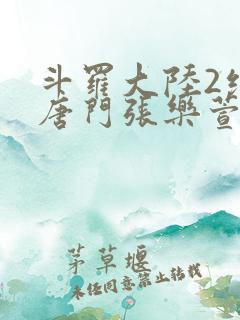 斗羅大陸2絕
唐門張樂萱
茅草堰
未經同意禁止转載